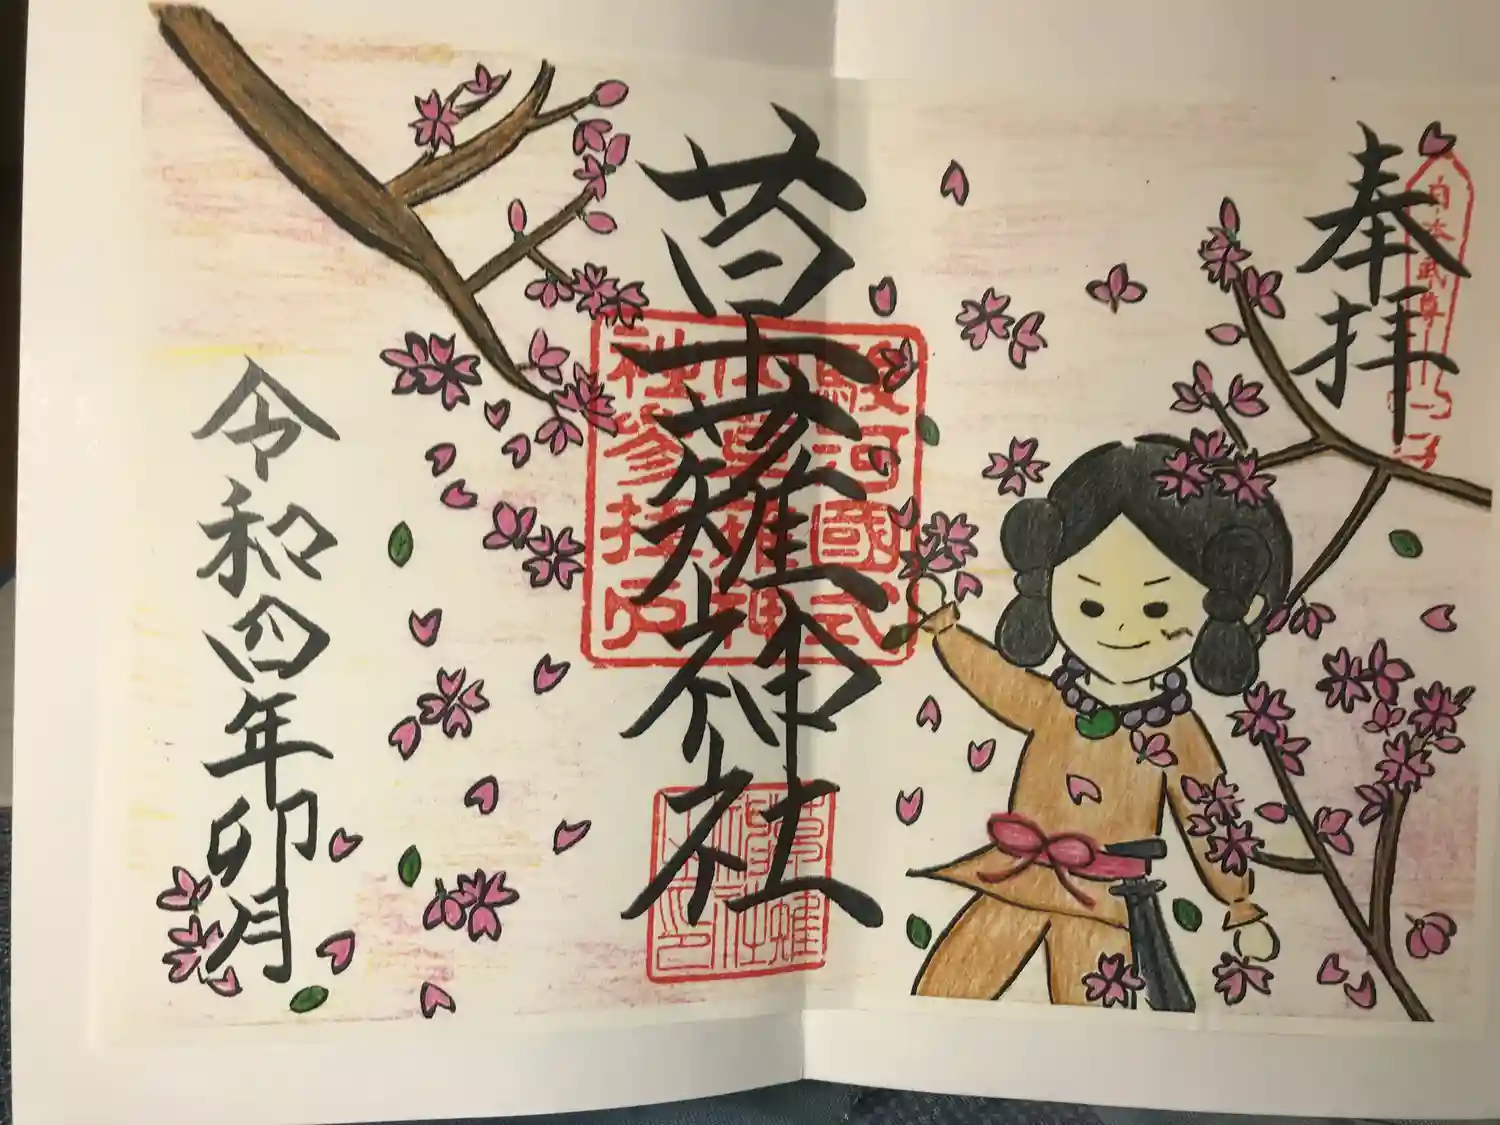 奉拝
日本武尊
草薙神社
駿河國式
内草薙神
社参拝印
草薙
神社
之印
令和四年卯月